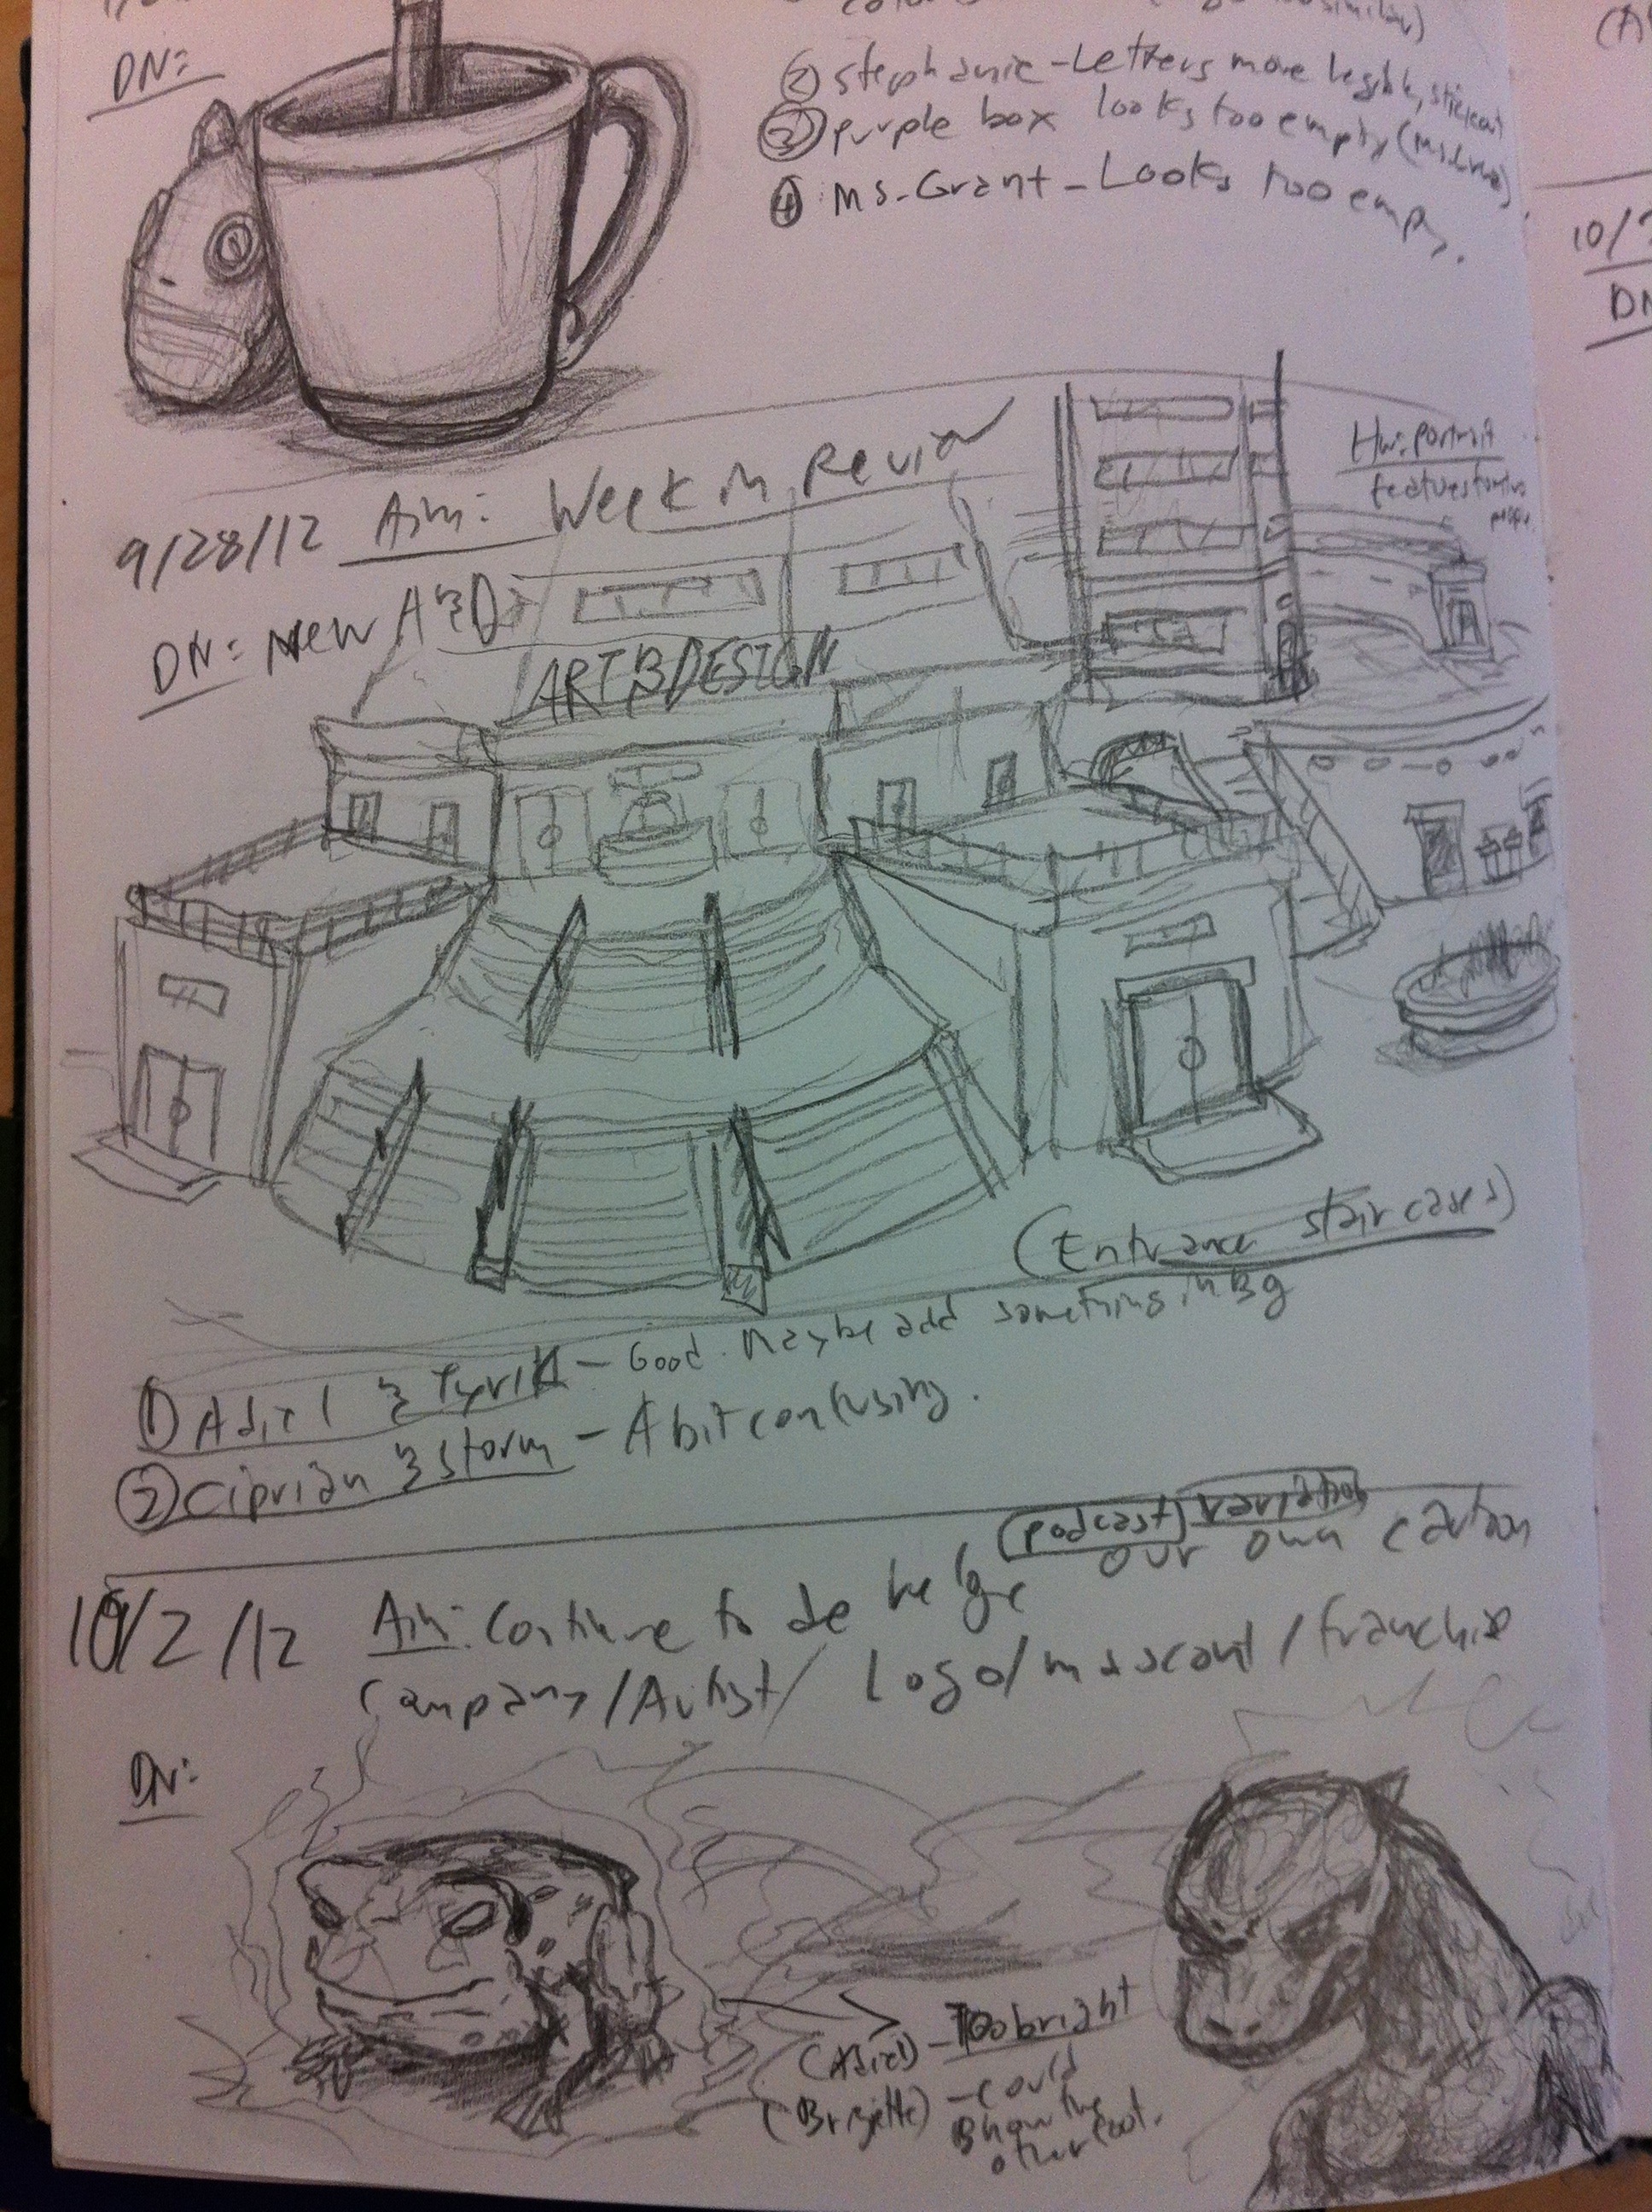 DN:
② Stephanie - Letters more legible, stick out
③ purple box looks too empty
④ Ms. Grant - Looks too empty.
9/28/12 Aim: Week in Review
HW: portrait
features
people
DN: New A&D:
ART & DESIGN
(Entrance staircases)
① Adiel & Tyrik - Good. Maybe add something in Bg
② Ciprian & Storm - A bit confusing.
(podcast) variation
10/2/12 Aim: Continue to our own cartoon
company/Artist/ Logo/mascant/franchise
DN:
(Adiel) - Too bright
(Brigette) - could
show the
other foot.
10/
DN